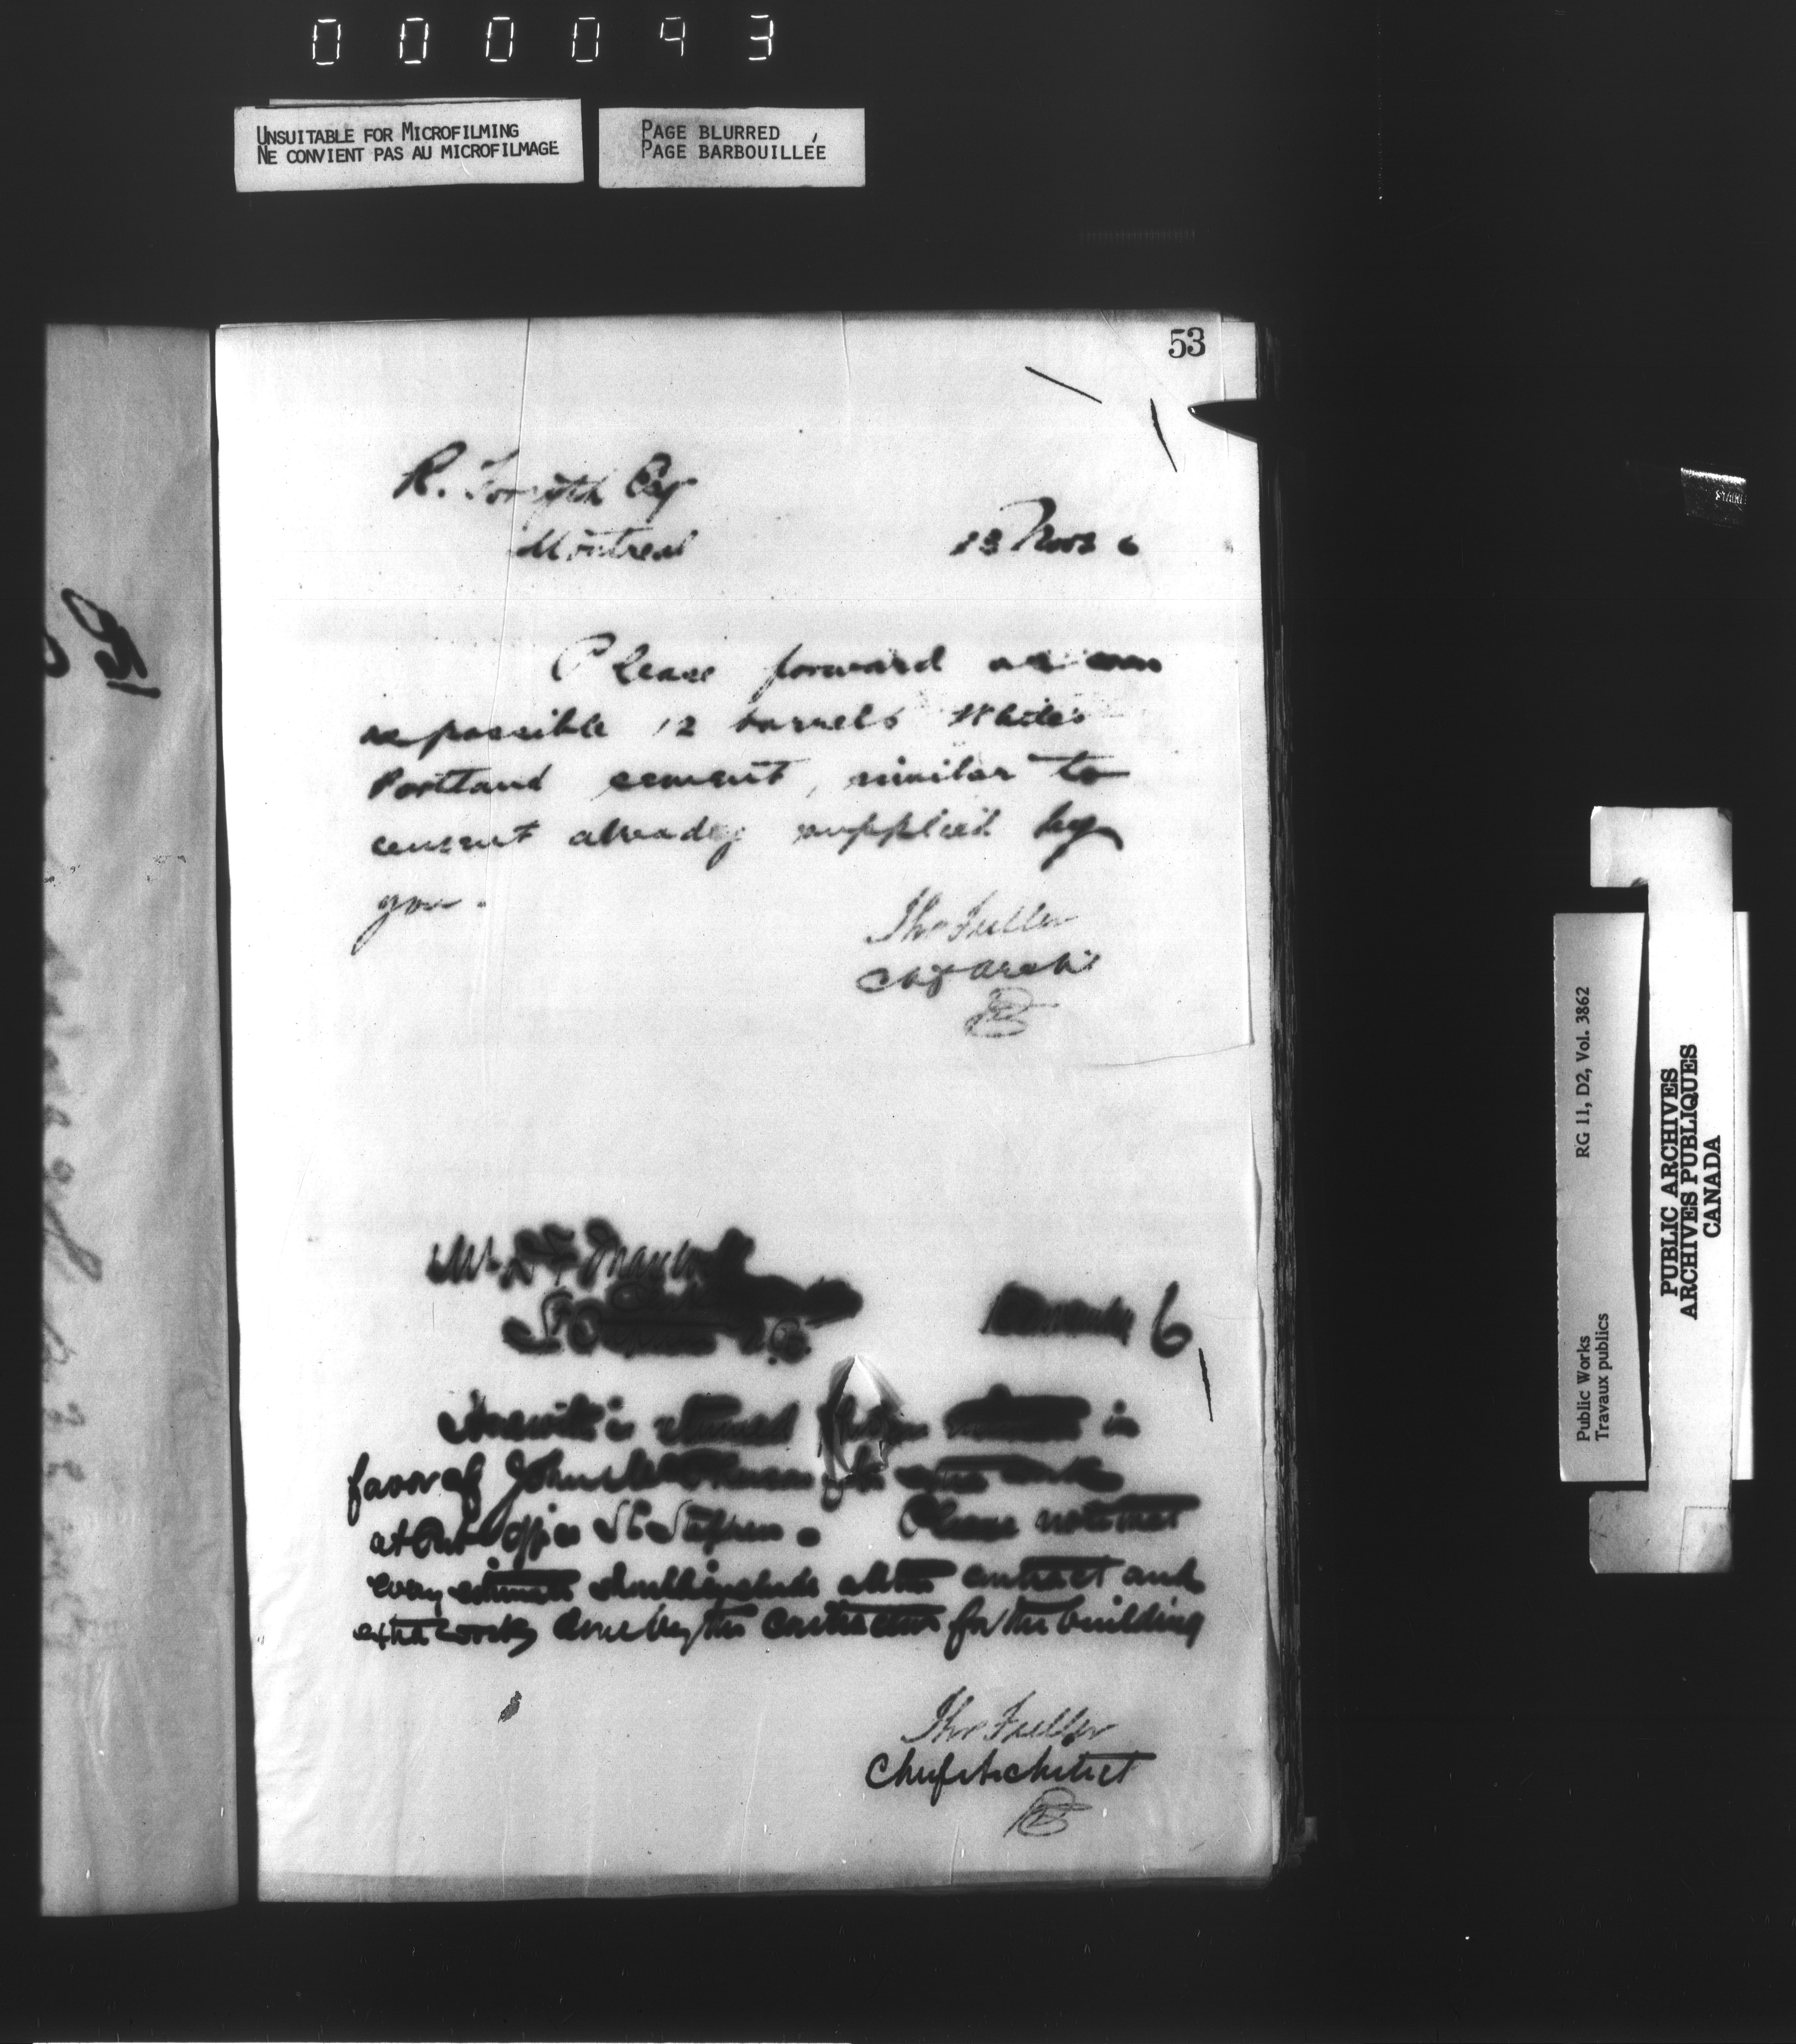 000093
UNSUITABLE FOR MICROFILMING
NE CONVIENT PAS AU MICROFILMAGE
PAGE BLURRED
PAGE BARBOUILLÉE
53
R. Forsyth Esq
Montreal
13 Nov 6
Please forward as soon
as possible 12 barrels White's
Portland cement, similar to
cement already supplied by
you.
Tho Fuller
Chf Archt
Mr
St Stephen N.B.
November 6
Herewith is returned in
favor of John extra work
at Post Office St Stephen. Please note that
every estimate should include all the contract and
extra works done by the contractor for the building
Tho Fuller
Chief Architect
Public Works
Travaux publics
RG 11, D2, Vol. 3862
PUBLIC ARCHIVES
ARCHIVES PUBLIQUES
CANADA